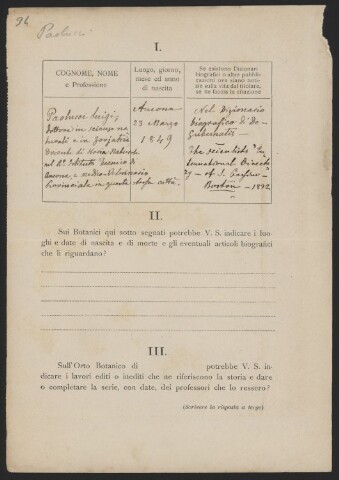 96
Paolucci
I.
COGNOME, NOME
e Professione
Luogo, giorno,
mese ed anno
di nascita
Se esistono Dizionari
biografici o altre pubblicazioni
ove siano notizie
sulla vita del titolare,
se ne faccia la citazione
Paolucci Luigi,
Dottore in scienze naturali
e in Zoojatria
Docente di Storia Naturale
nel R.° Istituto Tecnico di
Ancona, e medico-Veterinario
provinciale in questa stessa città.
Ancona
23 Marzo
1849
Nel Dizionario
biografico di De
Gubernatis -
The scientists' International
Directory - of S.
Boston - 1892
II.
Sui Botanici qui sotto segnati potrebbe V. S. indicare i luoghi
e date di nascita e di morte e gli eventuali articoli biografici
che li riguardano?
III.
Sull'Orto Botanico di potrebbe V. S. in-
dicare i lavori editi o inediti che ne riferiscono la storia e dare
o completare la serie, con date, dei professori che lo ressero?
(Scrivere la risposta a tergo)